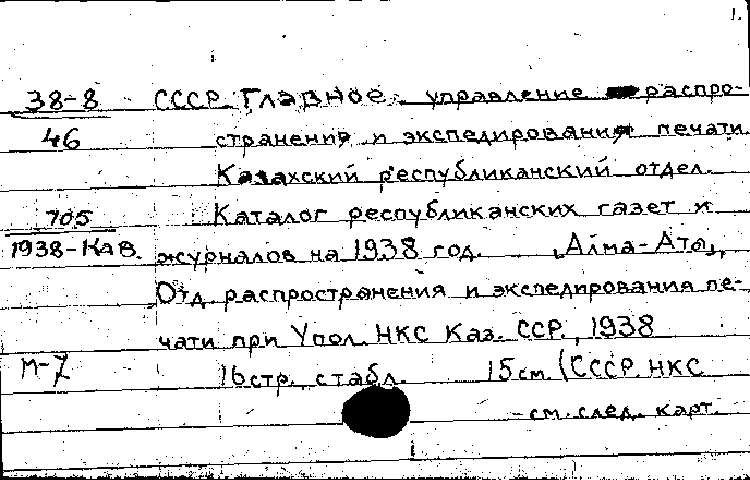 1.
38-8 СССР. Главное управление распро-
46 странения и экспедирования печати.
Казахский республиканский отдел.
705 Каталог республиканских газет и
1938-Кав. журналов на 1938 год. Алма-Ата,
Отд. распространения и экспедирования пе-
чати при Упол. НКС Каз. ССР., 1938
П-7 16 стр. с табл. 15 см. (СССР. НКС
- см. след. карт.